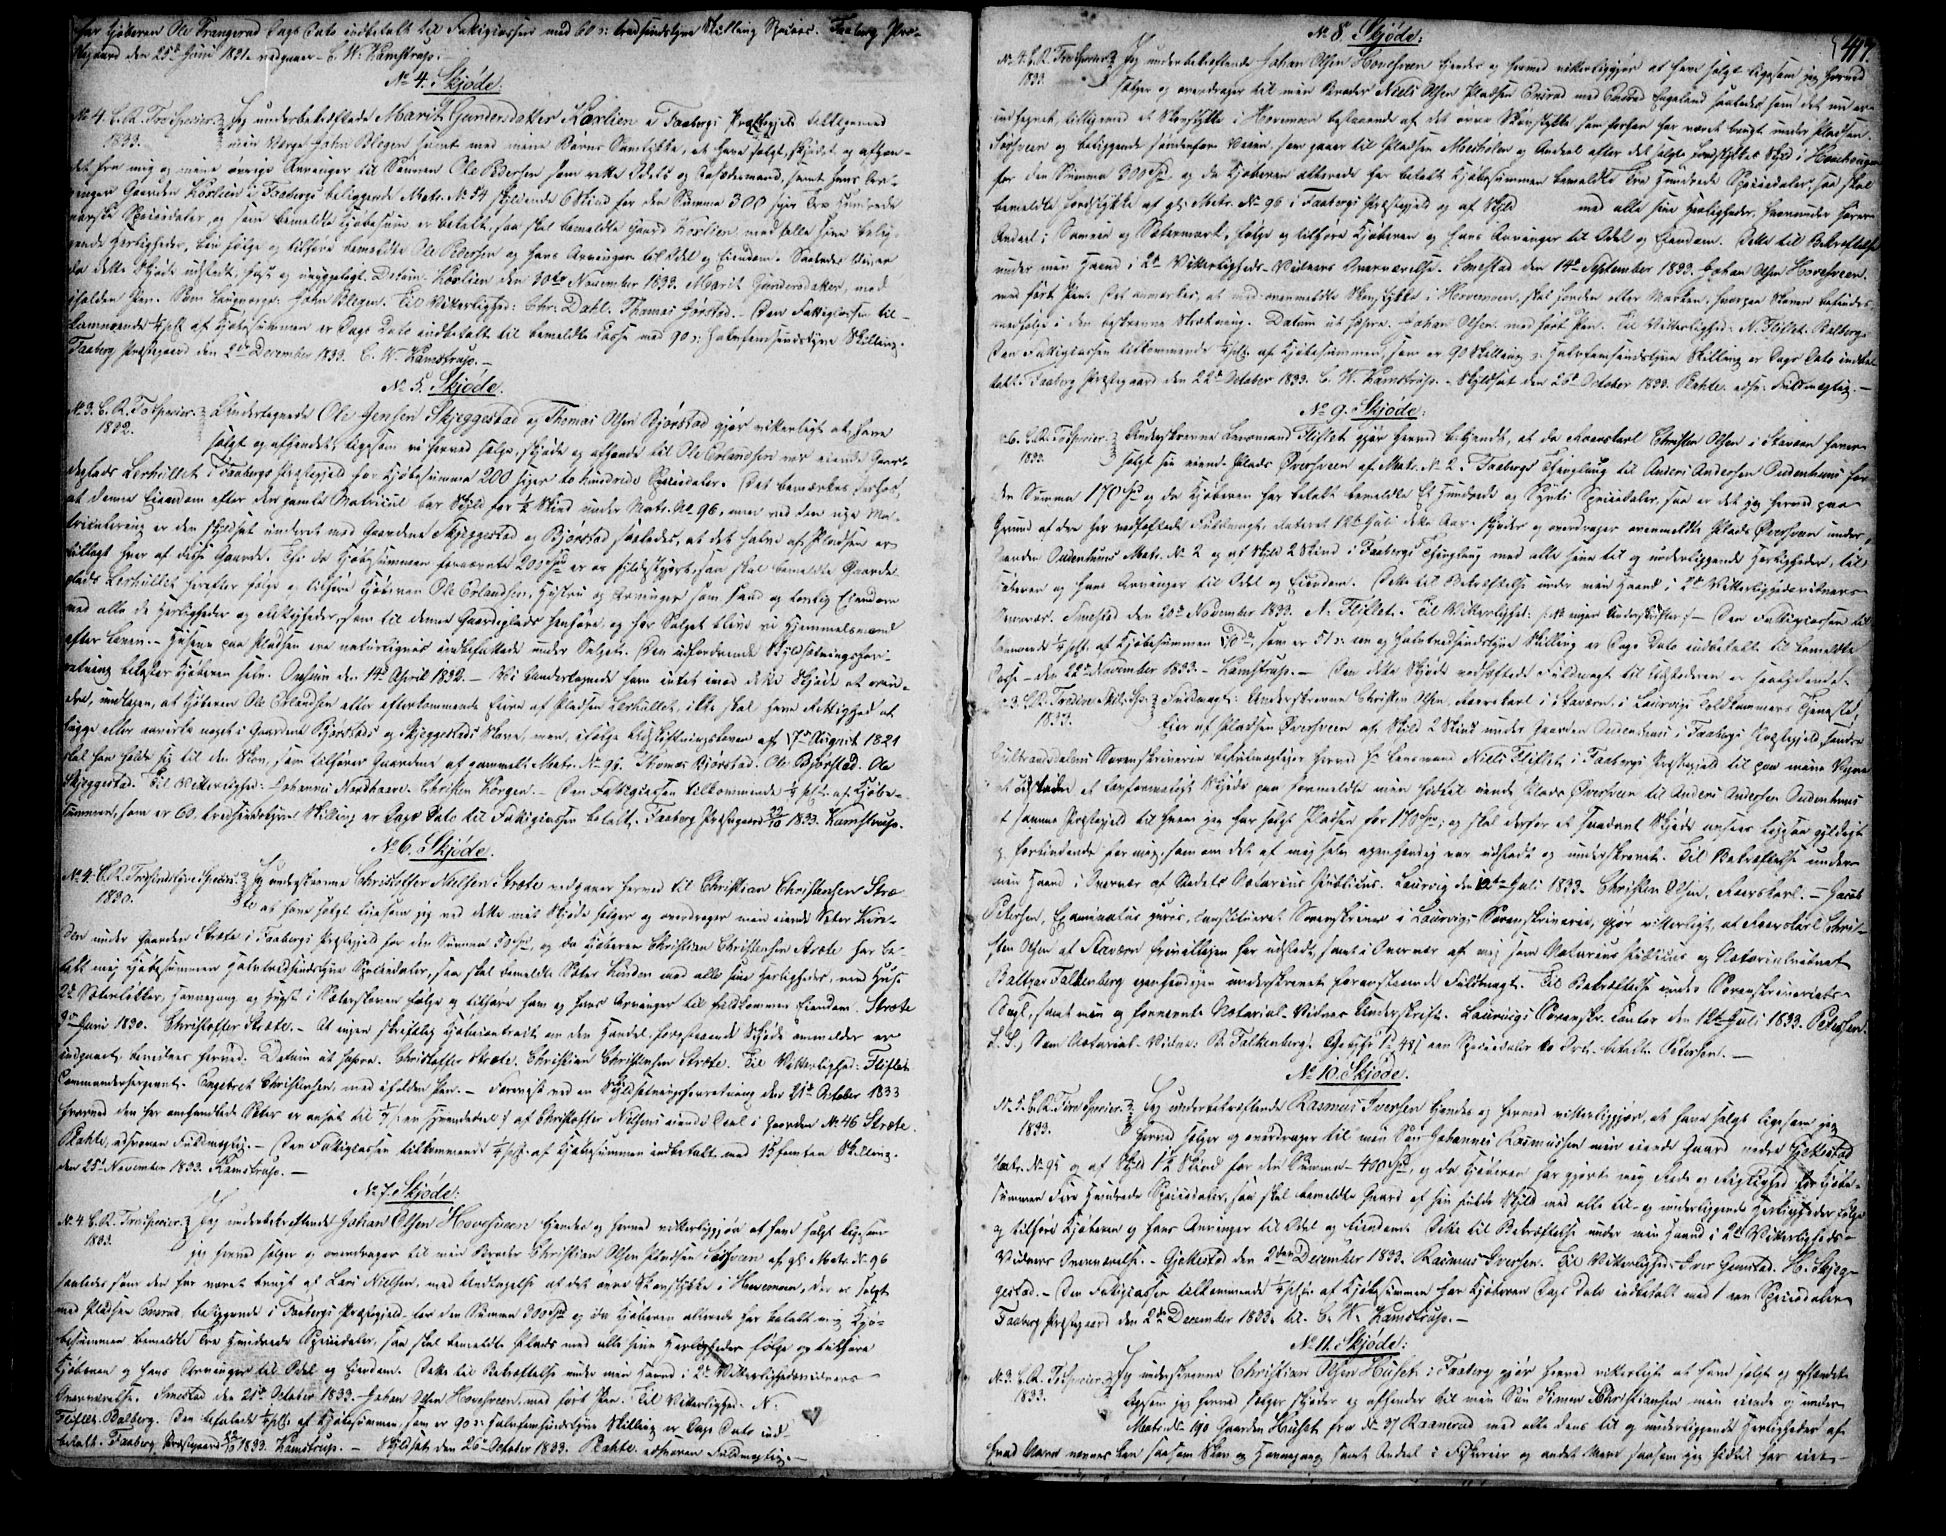 har Kjøberen Ole Trangsrud Dags Dato indbetalt til Fattigkassen med 60 s: tredsindstyve Skilling Species. Faaberg Præ-
stegaard den 25de Juni 1821. vedgaaer C. W. Kamstrup.
No 4. Skjøde.
No 4. C. R. Tre Specier. Jeg underbekræftede Marit Gundersdatter Kørlien i Faabergs Præstegjeld tilligemed
1833. min Verge John Blegen samt med mine Børns Samtykke, at have solgt, skjødet og afhæn-
det fra mig og mine øvrige Arvinger til Sønnen Ole Pedersen som rette Odels og Aasædesmand, samt hans Ar-
vinger Gaarden Kørlien i Faabergs beliggende Matr. No 54 skyldende 6 Skind for den Summa 300 siger Tre Hundrede
norske Speciedaler, og som bemeldte Kjøbesum er betalt, saa skal bemeldte Gaard Kørlien med alle sine belig-
gende Herligheder, bør følge og tilhøre bemeldte Ole Pedersen og hans Arvinger til Odel og Eiendom. Saaledes bliver
da dette Skjøde udstedt, læst og vedtaget. Datum. Kørlien den 30te November 1833. Marit Gundersdatter, med
iholden Pen. Som Laugverge: John Blegen. Til Vitterlighed: Chr. Dahl. Thomas Jørstad. – Den Fattigkassen til-
kommende ¼ pCt. af Kjøbesummen er Dags Dato indbetalt til bemeldte Casse med 90 s: halvfemsindstyve Skilling.
Faaberg Præstegaard den 2den December 1833. C. W. Kamstrup. –
No 5. Skjøde.
No 3. C. R. To Specier. Undertegnede Ole Jensen Skjeggestad og Thomas Olsen Bjørstad gjør vitterligt at have
1832. solgt og afhændet, ligesom vi herved sælge, skjøde og afhænde til Ole Erlandsen vor eiende Gaar-
deplads Lerhullet i Faabergs Præstegjeld for Kjøbesumma 200 siger to hundrede Speciedaler. Det bemærkes derhos,
at denne Eiendom efter den gamle Matricul bar Skyld for ½ Skind under Matr. No. 96, men ved den nye Ma-
triculering er den skyldsat underet med Gaardene Skjeggestad og Bjørstad saaledes, at det halve af Pladsen er
tillagt hver af disse Gaarde. Thi da Kjøbesummen fornævnte 200 Spd er os skadesløst, saa skal bemeldte Gaarde-
plads Lerhullet herefter følge og tilhøre Kjøberen Ole Erlandsen, Hustru og Arvinger som sand og lovlig Eiendom
med alle de Herligheder og Rettigheder, som til denne Gaardeplads henhøre, og for Salget blive vi Hjemmelsmænd
efter Loven. – Husene paa Pladsen ere naturligvis indbefattede under Salget. Den udfordrende Skyldsætningsfor-
retning bekoster Kjøberen selv. Onsum den 14de April 1832. – Vi Undertegnede have intet imod dette Skjøde at erin-
dre, undtagen, at Kjøberen Ole Erlandsen eller efterkommende Eiere af Pladsen Lerhullet ikke skal have Rettighed at
hugge eller avirke noget i Gaardene Bjørstads og Skjeggestads Skove, men ifølge Udskiftningsloven af 17de August 1821
skal han holde sig til den Skov, som tilhører Gaardene af gammelt Matr. No 96. Thomas Bjørstad. Ole Bjørstad. Ole
Skjeggestad. Til Vitterlighed: Johannes Nordhaave. Christen Korgen. – Den Fattigkassen tilkommende ¼ pCt. af Kjøbe-
summen, som er 60, tredsindstyve Skilling er Dags Dato til Fattigkassen betalt. Faaberg Præstegaard 22/10 1833. Kamstrup.
No 6. Skjøde.
No 4. C. R. Tredsindstyve Species. Jeg underskrevne Christoffer Nielsen Stræte vedgaaer herved til Christian Christensen Stræ-
1830. te at have solgt ligesom jeg ved dette mit Skjøde sælger og overdrager min eiende Sæter Kin-
den under Gaarden Stræte i Faabergs Præstegjeld for den Summa 50 Spd, og da Kjøberen Christian Christensen Stræte har be-
talt mig Kjøbesummen halvtredsindstyve Speciedaler, saa skal bemeldte Sæter Kinden med alle sine Herligheder, med Huse
2de Sæterløkker, Havnegang og Hugst i Sæterskoven følge og tilhøre ham og hans Arvinger til fuldkommen Eiendom. Stræte
9de Juni 1830. Christoffer Stræte. – At ingen skriftlig Kjøbecontract om den Handel, foranstaaende Skjøde ommelder er
indgaaet, bevidnes herved. Datum ut supra. Christoffer Stræte. Christian Christensen Stræte. Til Vitterlighed: Fliflet,
Commandersergeant. Engebret Christensen, med iholden Pen. – Foreviist ved en Skyldsætningsforretning den 21de October 1833
hvorved den her omhandlede Sæter er ansat til af Christoffer Nielsens eiende Deel i Gaarden No 46 Stræte.
Bahte, edsvoren Fuldmægtig. – Den Fattigkassen tilkommende ¼ pCt. af Kjøbesummen indbetalt med 15 femten Skilling.
den 25de November 1833. Kamstrup. –
No 7. Skjøde:
No 4. C. R. Tre Specier. Jeg underbekræftende Johan Olsen Hovesveen kjendes og hermed vitterliggjør at have solgt ligesom
1833. jeg herved sælger og overdrager til min Broder Christian Olsen Pladsen Sørsveen af gl: Matr. No 96
saaledes som den har været brugt af Lars Nielsen, med Undtagelse af det øvre Skovstykke i Hovemoen, der er solgt
med Pladsen Onsrud beliggende i Faabergs Præstegjeld for den Summa 300 Spd og da Kjøberen allerede har betalt mig Kjø-
besummen bemeldte Tre Hundrede Speciedaler, saa skal bemeldte Plads med alle sine Herligheder følge og tilhøre
Kjøberen og hans Arvinger til Odel og Eiendom. Dette til Bekræftelse under min Haand i 2de Vitterlighedsvidners
Overværelse. Smestad den 21de October 1833. Johan Olsen Hovesveen, med ført Pen. Til Vitterlighed: N.
Fliflet. Balberg. Den befalede ¼ pCt. af Kjøbesummen, som er 90 s: halvfemsindstyve Skilling er Dags Dato ind-
betalt. Faaberg Præstegaard 22/10 1833. Kamstrup. – Skyldsat den 26de October 1833. Bahte, edsvoren Fuldmægtig. –
417.
No 8. Skjøde:
No 4. C. R. Tre Specier. Jeg underbekræftende Johan Olsen Hovesveen kjendes og hermed vitterliggjør at have solgt ligesom jeg herved
1833. sælger og overdrager til min Broder Niels Olsen Pladsen Onsrud med Onsrud Engeland saaledes som det nu er
indhegnet tilligemed et Skovstykke i Hovemoen bestaaende af det øvre Skovstykke som forhen har været brugt under Pladsen
Sørsveen og beliggende søndenfor Veien, som gaaer til Pladsen Moeholen og Andeel efter det solgte Jordstykkes Skyld i Hovehougen
for den Summa 300 Spd og da Kjøberen allerede har betalt Kjøbesummen bemeldte Tre Hundrede Speciedaler, saa skal
bemeldte Jordstykke af gl: Matr. No 96 i Faabergs Præstegjeld og af Skyld med alle sine Herligheder, hvorunder hører
Andeel i Havnen og Sætermark, følge og tilhøre Kjøberen og hans Arvinger til Odel og Eiendom. Dette til Bekræftelse
under min Haand i 2de Vitterligheds-Vidners Overværelse. Smestad den 14de September 1833. Johan Olsen Hovesveen.
med ført Pen. Det anmærkes, at med ovenmeldte Skovstykke i Hovemoen, skal Jorden eller Marken, hvorpaa Skoven befindes
medfølge i den beskrevne Strækning. Datum ut supra. Johan Olsen. med ført Pen. Til Vitterlighed: N. Fliflet. Balberg.
Den Fattigkassen tilkommende ¼ pCt. af Kjøbesummen, som er 90 Skilling s: halvfemsindstyve Skilling er Dags Dato indbe-
talt. Faaberg Præstegaard den 22de October 1833. C. W. Kamstrup. – Skyldsat den 26de October 1833. Bahte. edsv. Fuldmægtig. –
No 9. Skjøde:
C. R. To Specier. Underskrevne Lensmand Fliflet gjør herved bekjendt, at da Røerskarl Christen Olsen i Stavern haver
1833. solgt sin eiende Plads Øversveen af Matr. No 2. Faabergs Thinglaug til Anders Andersen Oudenhuus for
den Summa 170 Spd og da Kjøberen har betalt bemeldte Et Hundrede og Sytti Speciedaler, saa er det jeg herved paa
Grund af den her vedhæftede Fuldmagt, dateret 12te Juli dette Aar skjøder og overdrager ovenmeldte Plads Øversveen under
Gaarden Oudenhuus Matr. No 2 og af Skyld 2 Skind i Faabergs Thinglaug med alle sine til og underliggende Herligheder, til
Kjøberen og hans Arvinger til Odel og Eiendom. Dette til Bekræftelse under min Haand i 2de Vitterlighedsvidners
Overvær. Smestad den 20de November 1833. N. Fliflet. Til Vitterlighed: (: ingen Underskrifter :) – Den Fattigkassen til-
kommende ¼ pCt. af Kjøbesummen 170 Spd, som er 51 s: een og halvtredsindstyve Skilling er Dags Dato indbetalt til bemeldte
Casse – den 22de November 1833. – Kamstrup. – Den dette Skjøde vedhæftede Fuldmagt til Udstederen er saalydende.
Fuldmagt: Underskrevne Christen Olsen, Røerskarl i Stavern, i Laurvigs Toldkammers Tjeneste,
1833. Eier af Pladsen Øversveen af Skyld 2 Skind under Gaarden Oudenhuus i Faabergs Præstegjeld, søndre
Gulbrandsdalens Sorenskriverie befuldmægtiger herved Hr. Lensmand Niels Fliflet i Faabergs Præstegjeld til paa mine Vegne
at udstæde et lovformeligt Skjøde paa formeldte min hidtil eiende Plads Øversveen til Anders Andersen Oudenhuus
i samme Præstegjeld til hvem jeg har solgt Pladsen for 170 Spd; og skal derfor et saadant Skjøde ansees ligesaa gyldigt
og forbindende for mig, som om det af mig selv egenhændig var udstædt og underskrevet. Til Bekræftelse under
min Haand i Overvær af Stedets Notarius Publicus. Laurvig den 12te Juli 1833. Christen Olsen, Røerskarl. – Jacob
Petersen, Examinatus juris, constitueret Sorenskriver i Laurvigs Sorenskriverie, gjør vitterligt, at Røerskarl Chris-
ten Olsen af Stavern frivilligen har udstedt, samt i Overvær af mig som Notarius Publicus og Notarialvidnet
Baltzer Falkenberg egenhændigen underskrevet foranstaaende Fuldmagt. Til Bekræftelse under Sorenskriveriets
Segl, samt min og fornævnte Notarial-Vidnes Underskrift. Laurvigs Sorenskr. Contor den 12te Juli 1833. Petersen.
L. S.) Som Notarial-Vidne: B. Falkenberg. Gebyhr 1 d 48 s een Speciedaler to Ort. betalt. Petersen. –
No 10. Skjøde.
No 5. C. R. Fire Specier. Jeg underbekræftende Rasmus Iversen kjendes og hermed vitterliggjør, at have solgt ligesom jeg
1833. herved sælger og overdrager til min Søn Johannes Rasmussen min eiende Gaard nedre Gjekkestad
Matr. No 95 og af Skyld 1½ Skind for den Summa 400 Spd, og da Kjøberen har gjort mig Rede og Rigtighed for Kjøbe-
summen Fire Hundrede Speciedaler, saa skal bemeldte Gaard af sin fulde Skyld med alle til- og underliggende Herligheder følge
og tilhøre Kjøberen og hans Arvinger til Odel og Eiendom. Dette til Bekræftelse under min Haand i 2de Vitterligheds-
Vidners Overværelse. – Gjekkestad den 2den December 1833. Rasmus Iversen. Til Vitterlighed: Iver Gunstad. H. Skjeg-
gestad. – Den Fattigkassen tilkommende ¼ pCt. af Kjøbesummen har Kjøberen Dags Dato indbetalt med 1 een Speciedaler
Faaberg Præstegaard den 2den December 1833. C. W. Kamstrup. –
No 11. Skjøde:
No 3. C. R. To Specier. Jeg underskrevne Christian Olsen Huset i Faaberg gjør herved vitterligt at have solgt og afhændet
1833. ligesom jeg herved sælger skjøder og afhænder til min Søn Simen Christiansen min eiende og under
Matr. No 190 Gaarden Huset fra No 27 Raanrud med alle dens til og underliggende Herligheder af
hvad Navn nævnes kan saasom Skov og Havnegang samt Andeel i Fiskerier og andet Mere saasom jeg hidtil har eiet